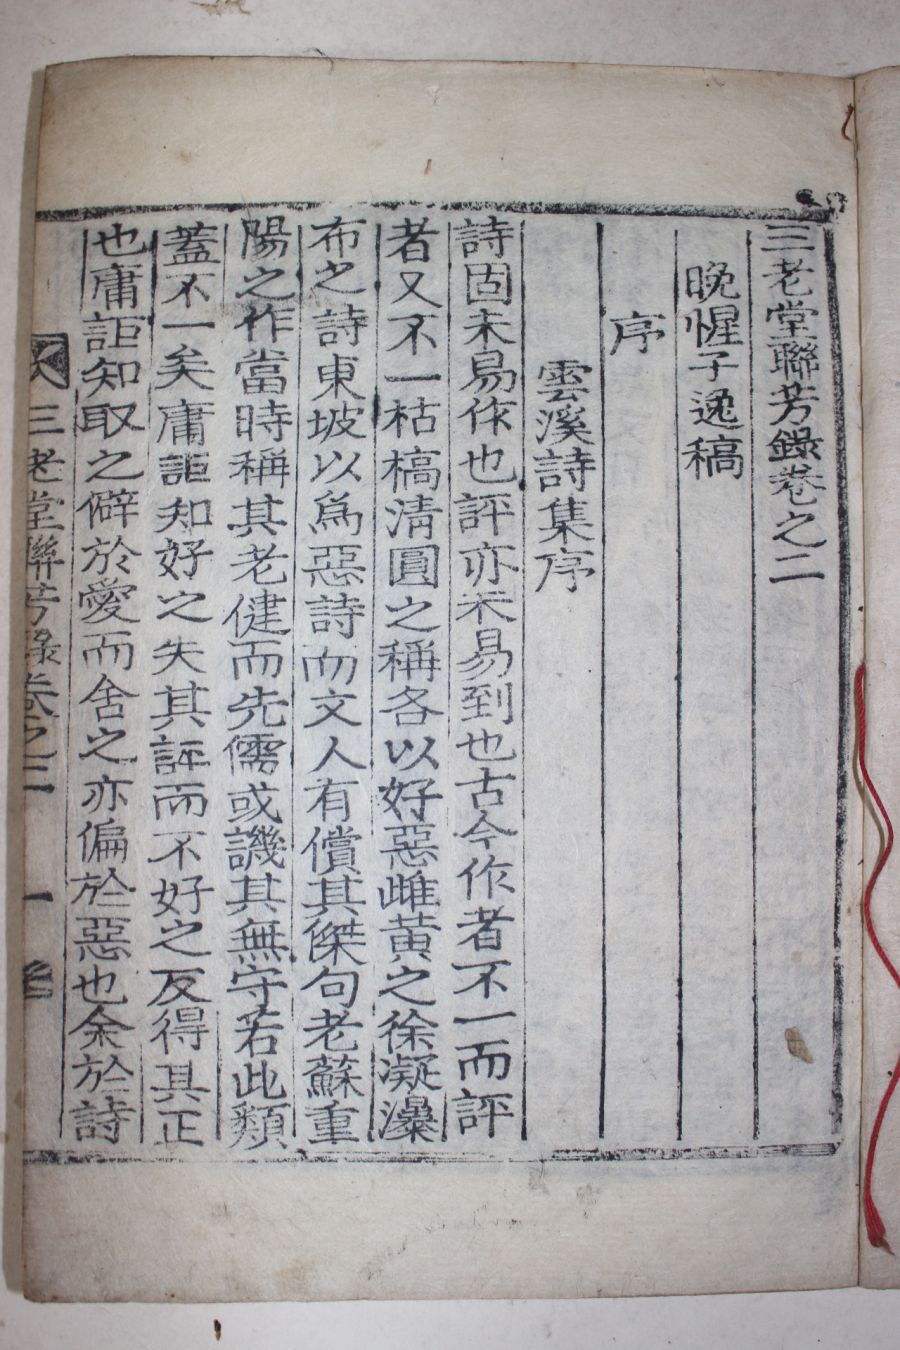 三老堂聯芳錄卷之二
晚惺子逸稿
序
雲溪詩集序
詩固未易作也評亦未易到也古今作者不一而評
者又不一枯槁清圓之稱各以好惡雌黃之徐凝瀑
布之詩東坡以爲惡詩而文人有償其傑句老蘇重
陽之作當時稱其老健而先儒或譏其無守若此類
蓋不一矣庸詎知好之失其評而不好之反得其正
也庸詎知取之僻於愛而舍之亦偏於惡也余於詩
三老堂聯芳錄卷之二 一